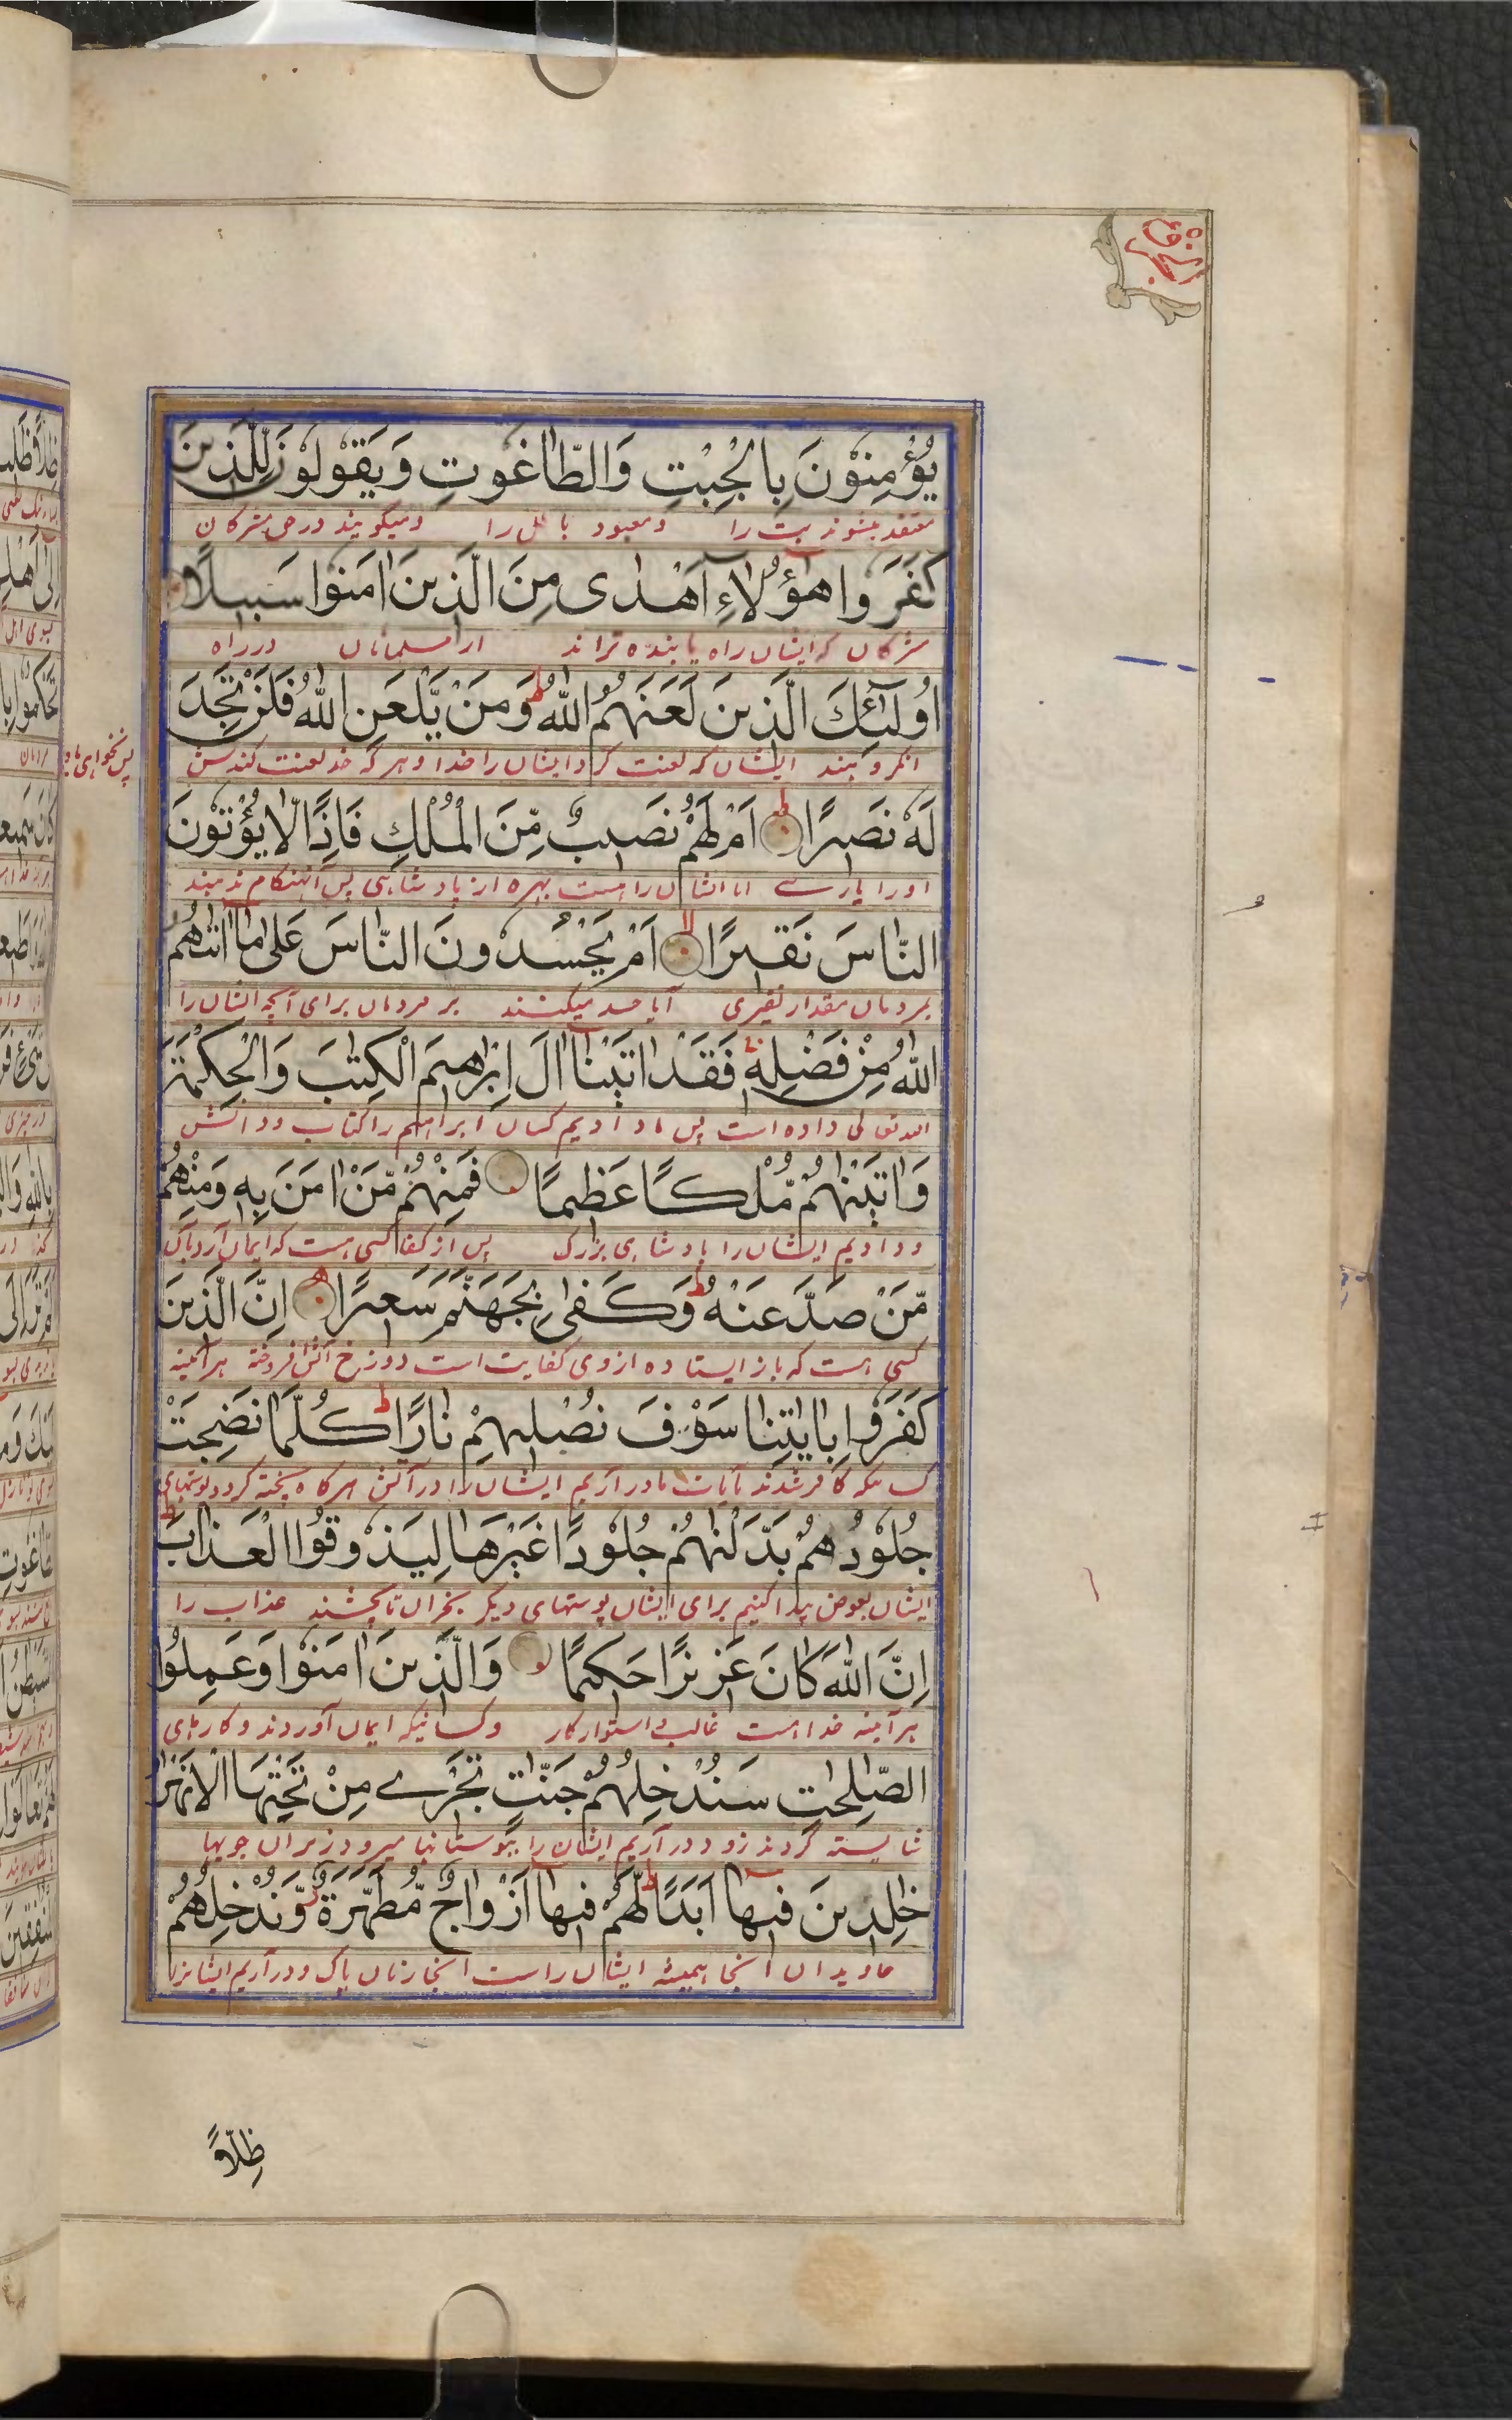 يُؤْمِنُوْنَ بِالْجِبْتِ وَالطَّاغُوتِ وَيَقُولُوْنَ لِلَّذِينَ
معتقد میشوند بت را ومعبود باطل را ومیگویند در حق مشرکان
كَفَرُوا هٰٓؤُلَاءِ اَهْدٰى مِنَ الَّذِينَ اٰمَنُوا سَبِيلًا
مشرکان که ایشان راه یابنده تراند از مسلمانان در راه
اُولٰٓئِكَ الَّذِينَ لَعَنَهُمُ اللّٰهُ ط وَمَنْ يَّلْعَنِ اللّٰهُ فَلَنْ تَجِدَ
ایشان که لعنت کرد ایشان را خدا و هر که خدا لعنت کندش
پس نخواهی یافت
لَهٗ نَصِيرًا ط اَمْ لَهُمْ نَصِيبٌ مِّنَ الْمُلْكِ فَاِذًا لَّا يُؤْتُوْنَ
اورا یارے ایا ایشان را هست بهره از پادشاهی پس آنهنگام ندهند
النَّاسَ نَقِيرًا لا اَمْ يَحْسُدُونَ النَّاسَ عَلٰى مَا اٰتٰىهُمُ
بمردمان مقدار نقیری آیا حسد میکنند بر مردمان برای آنچه ایشان را
اللّٰهُ مِنْ فَضْلِهٖ فَقَدْ اٰتَيْنَا اٰلَ اِبْرٰهِيمَ الْكِتٰبَ وَالْحِكْمَةَ
الله تعالی داده است پس ما دادیم کسان ابراهیم را کتاب ودانش
وَاٰتَيْنٰهُمْ مُّلْكًا عَظِيمًا فَمِنْهُمْ مَّنْ اٰمَنَ بِهٖ وَمِنْهُمْ
ودادیم ایشان را پادشاهی بزرگ پس از کفا کسی هست که ایمان آورد بآن
مَّنْ صَدَّ عَنْهُ ط وَكَفٰى بِجَهَنَّمَ سَعِيرًا اِنَّ الَّذِينَ
کسی هست که باز ایستاده ازوی کفایت است دوزخ آتش افروخته هرآئینه
كَفَرُوا بِاٰيٰتِنَا سَوْفَ نُصْلِيهِمْ نَارًا ط كُلَّمَا نَضِجَتْ
کسانیکه کافر شدند بآیات ما در آریم ایشان را در آتش هر گاه پخته گردد پوستهای
جُلُوْدُهُمْ بَدَّلْنٰهُمْ جُلُوْدًا غَيْرَهَا لِيَذُوقُوا الْعَذَابَ ط
ایشان بعوض پیدا کنیم برای ایشان پوستهای دیگر بجز آن تا بچشند عذاب را
اِنَّ اللّٰهَ كَانَ عَزِيزًا حَكِيمًا وَالَّذِينَ اٰمَنُوْا وَعَمِلُوا
هرآئینه خدا هست غالب استوار کار وکسانیکه ایمان آوردند و کارهای
الصّٰلِحٰتِ سَنُدْخِلُهُمْ جَنّٰتٍ تَجْرِے مِنْ تَحْتِهَا الْاَنْهٰرُ
شایسته کردند زود در آریم ایشان را ببوستانها میرود زیر آن جویها
خٰلِدِينَ فِيهَا اَبَدًا ط لَهُمْ فِيهَا اَزْوَاجٌ مُّطَهَّرَةٌ وَّنُدْخِلُهُمْ
جاویدان آنجا همیشه ایشان راست آنجا زنان پاک ودر آریم ایشانرا
ظِلًّا